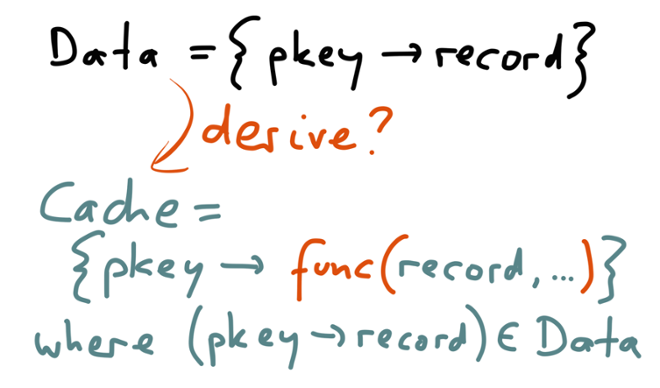 Data = {pkey → record}
derive?
Cache =
{pkey → func(record, ...)}
where (pkey → record) ∈ Data